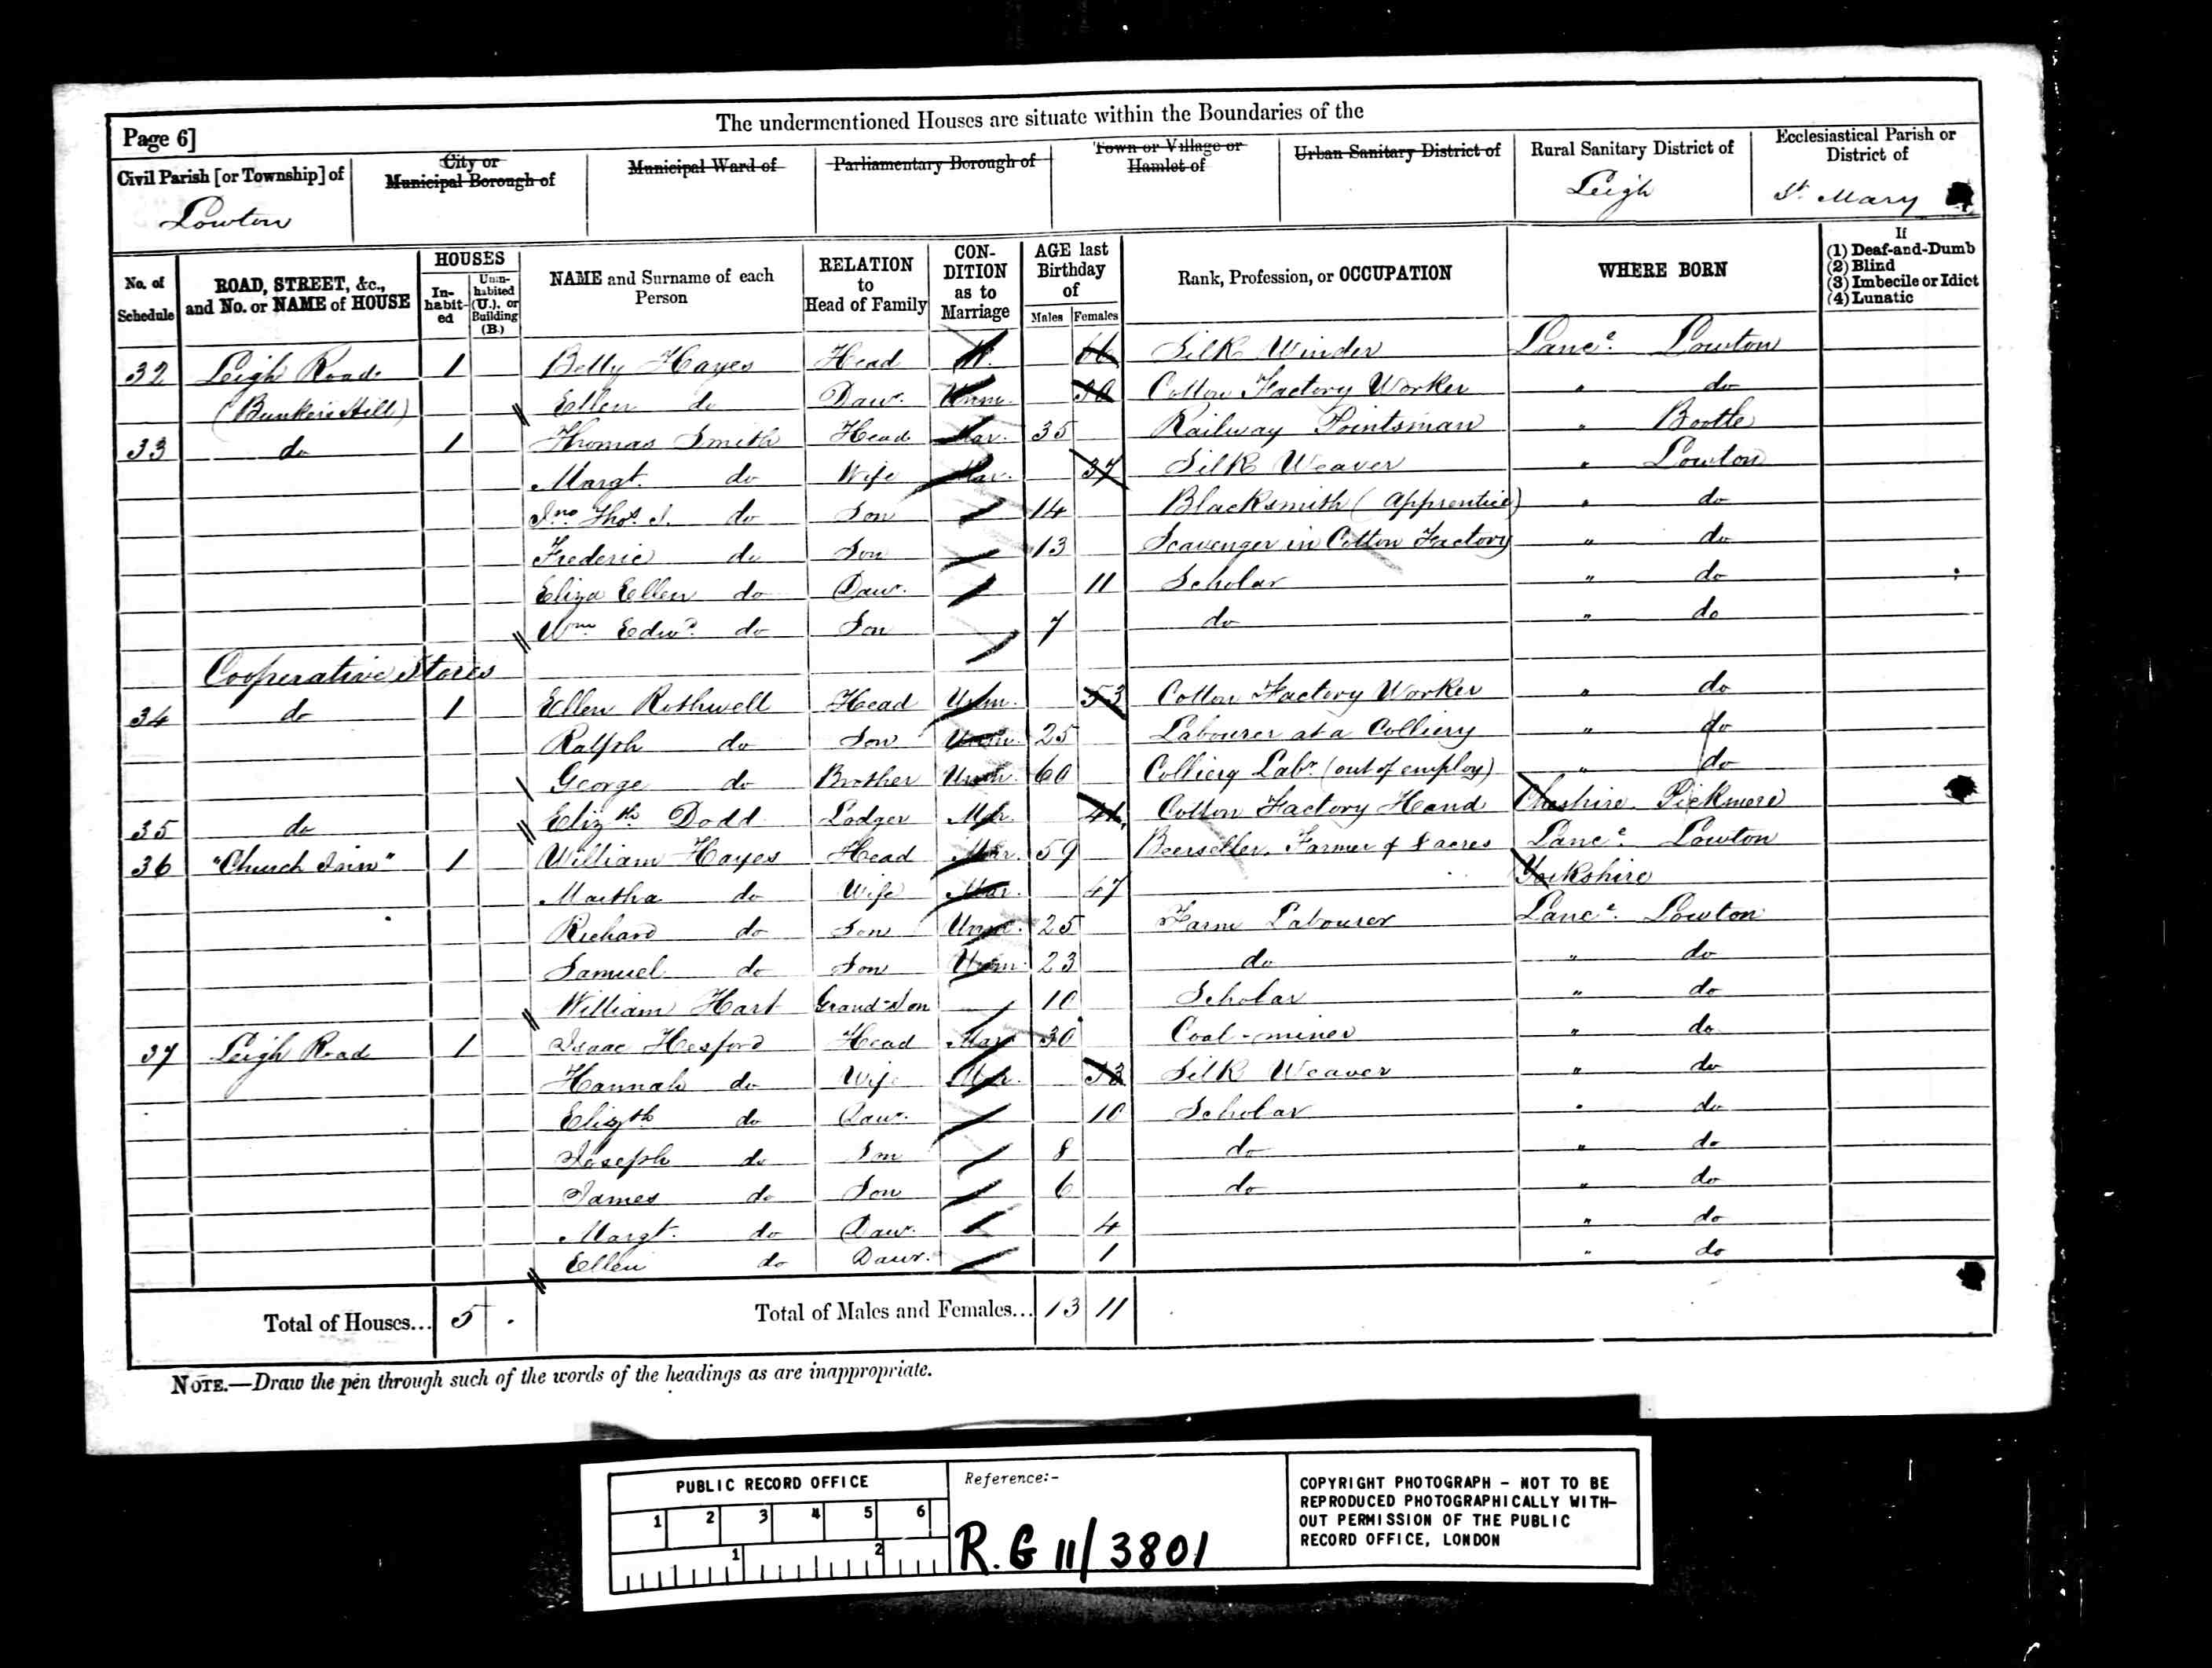 The undermentioned Houses are situate within the Boundaries of the
Page 6]
Civil Parish [or Township] of
Lowton
City or
Municipal Borough of
Municipal Ward of
Parliamentary Borough of
Town or Village or
Hamlet of
Urban Sanitary District of
Rural Sanitary District of
Leigh
Ecclesiastical Parish or
District of
St. Mary
No. of Schedule
ROAD, STREET, &c., and No. or NAME of HOUSE
HOUSES
In-habit-ed
Unin-habited (U.), or Building (B.)
NAME and Surname of each Person
RELATION to Head of Family
CON-DITION as to Marriage
AGE last Birthday of
Males Females
Rank, Profession, or OCCUPATION
WHERE BORN
If
(1) Deaf-and-Dumb
(2) Blind
(3) Imbecile or Idiot
(4) Lunatic
32 Leigh Road 1 Betty Hayes Head W. 66 Silk Winder Lanc.e Lowton
(Bunkers Hill) Ellen do Daur. Unm. Cotton Factory Worker " do
33 do 1 Thomas Smith Head Mar. 35 Railway Pointsman " Bootle
Margt. do Wife Mar. 37 Silk Weaver " Lowton
Jno. Thos. J. do Son 14 Blacksmith (Apprentice) " do
Frederic do Son 13 Scavenger in Cotton Factory " do
Eliza Ellen do Daur. 11 Scholar " do
Wm. Edwd. do Son 7 do " do
Cooperative Stores
34 do 1 Ellen Rothwell Head Unm. 53 Cotton Factory Worker " do
Ralph do Son Unm. 25 Labourer at a Colliery " do
George do Brother Unm. 60 Colliery Labr. (out of employ) " do
35 do Elizth. Dodd Lodger Mar. Cotton Factory Hand Cheshire. Pickmere
36 "Church Inn" 1 William Hayes Head Mar. 59 Beerseller, Farmer of 8 acres Lanc.e Lowton
Martha do Wife Mar. 47 Yorkshire
Richard do Son Unm. 25 Farm Labourer Lanc.e Lowton
Samuel do Son Unm. 23 do " do
William Hart Grand-son 10 Scholar " do
37 Leigh Road 1 Isaac Hesford Head Mar. 30 Coal-miner " do
Hannah do Wife Mar. Silk Weaver " do
Elizth do Daur. 10 Scholar " do
Joseph do Son 8 do " do
James do Son 6 do " do
Margt. do Daur. 4 " do
Ellen do Daur. 1 " do
Total of Houses... 5 Total of Males and Females... 13 11
NOTE.—Draw the pen through such of the words of the headings as are inappropriate.
PUBLIC RECORD OFFICE
1 2 3 4 5 6
1 2
Reference:-
R.G 11/3801
COPYRIGHT PHOTOGRAPH - NOT TO BE
REPRODUCED PHOTOGRAPHICALLY WITH-
OUT PERMISSION OF THE PUBLIC
RECORD OFFICE, LONDON